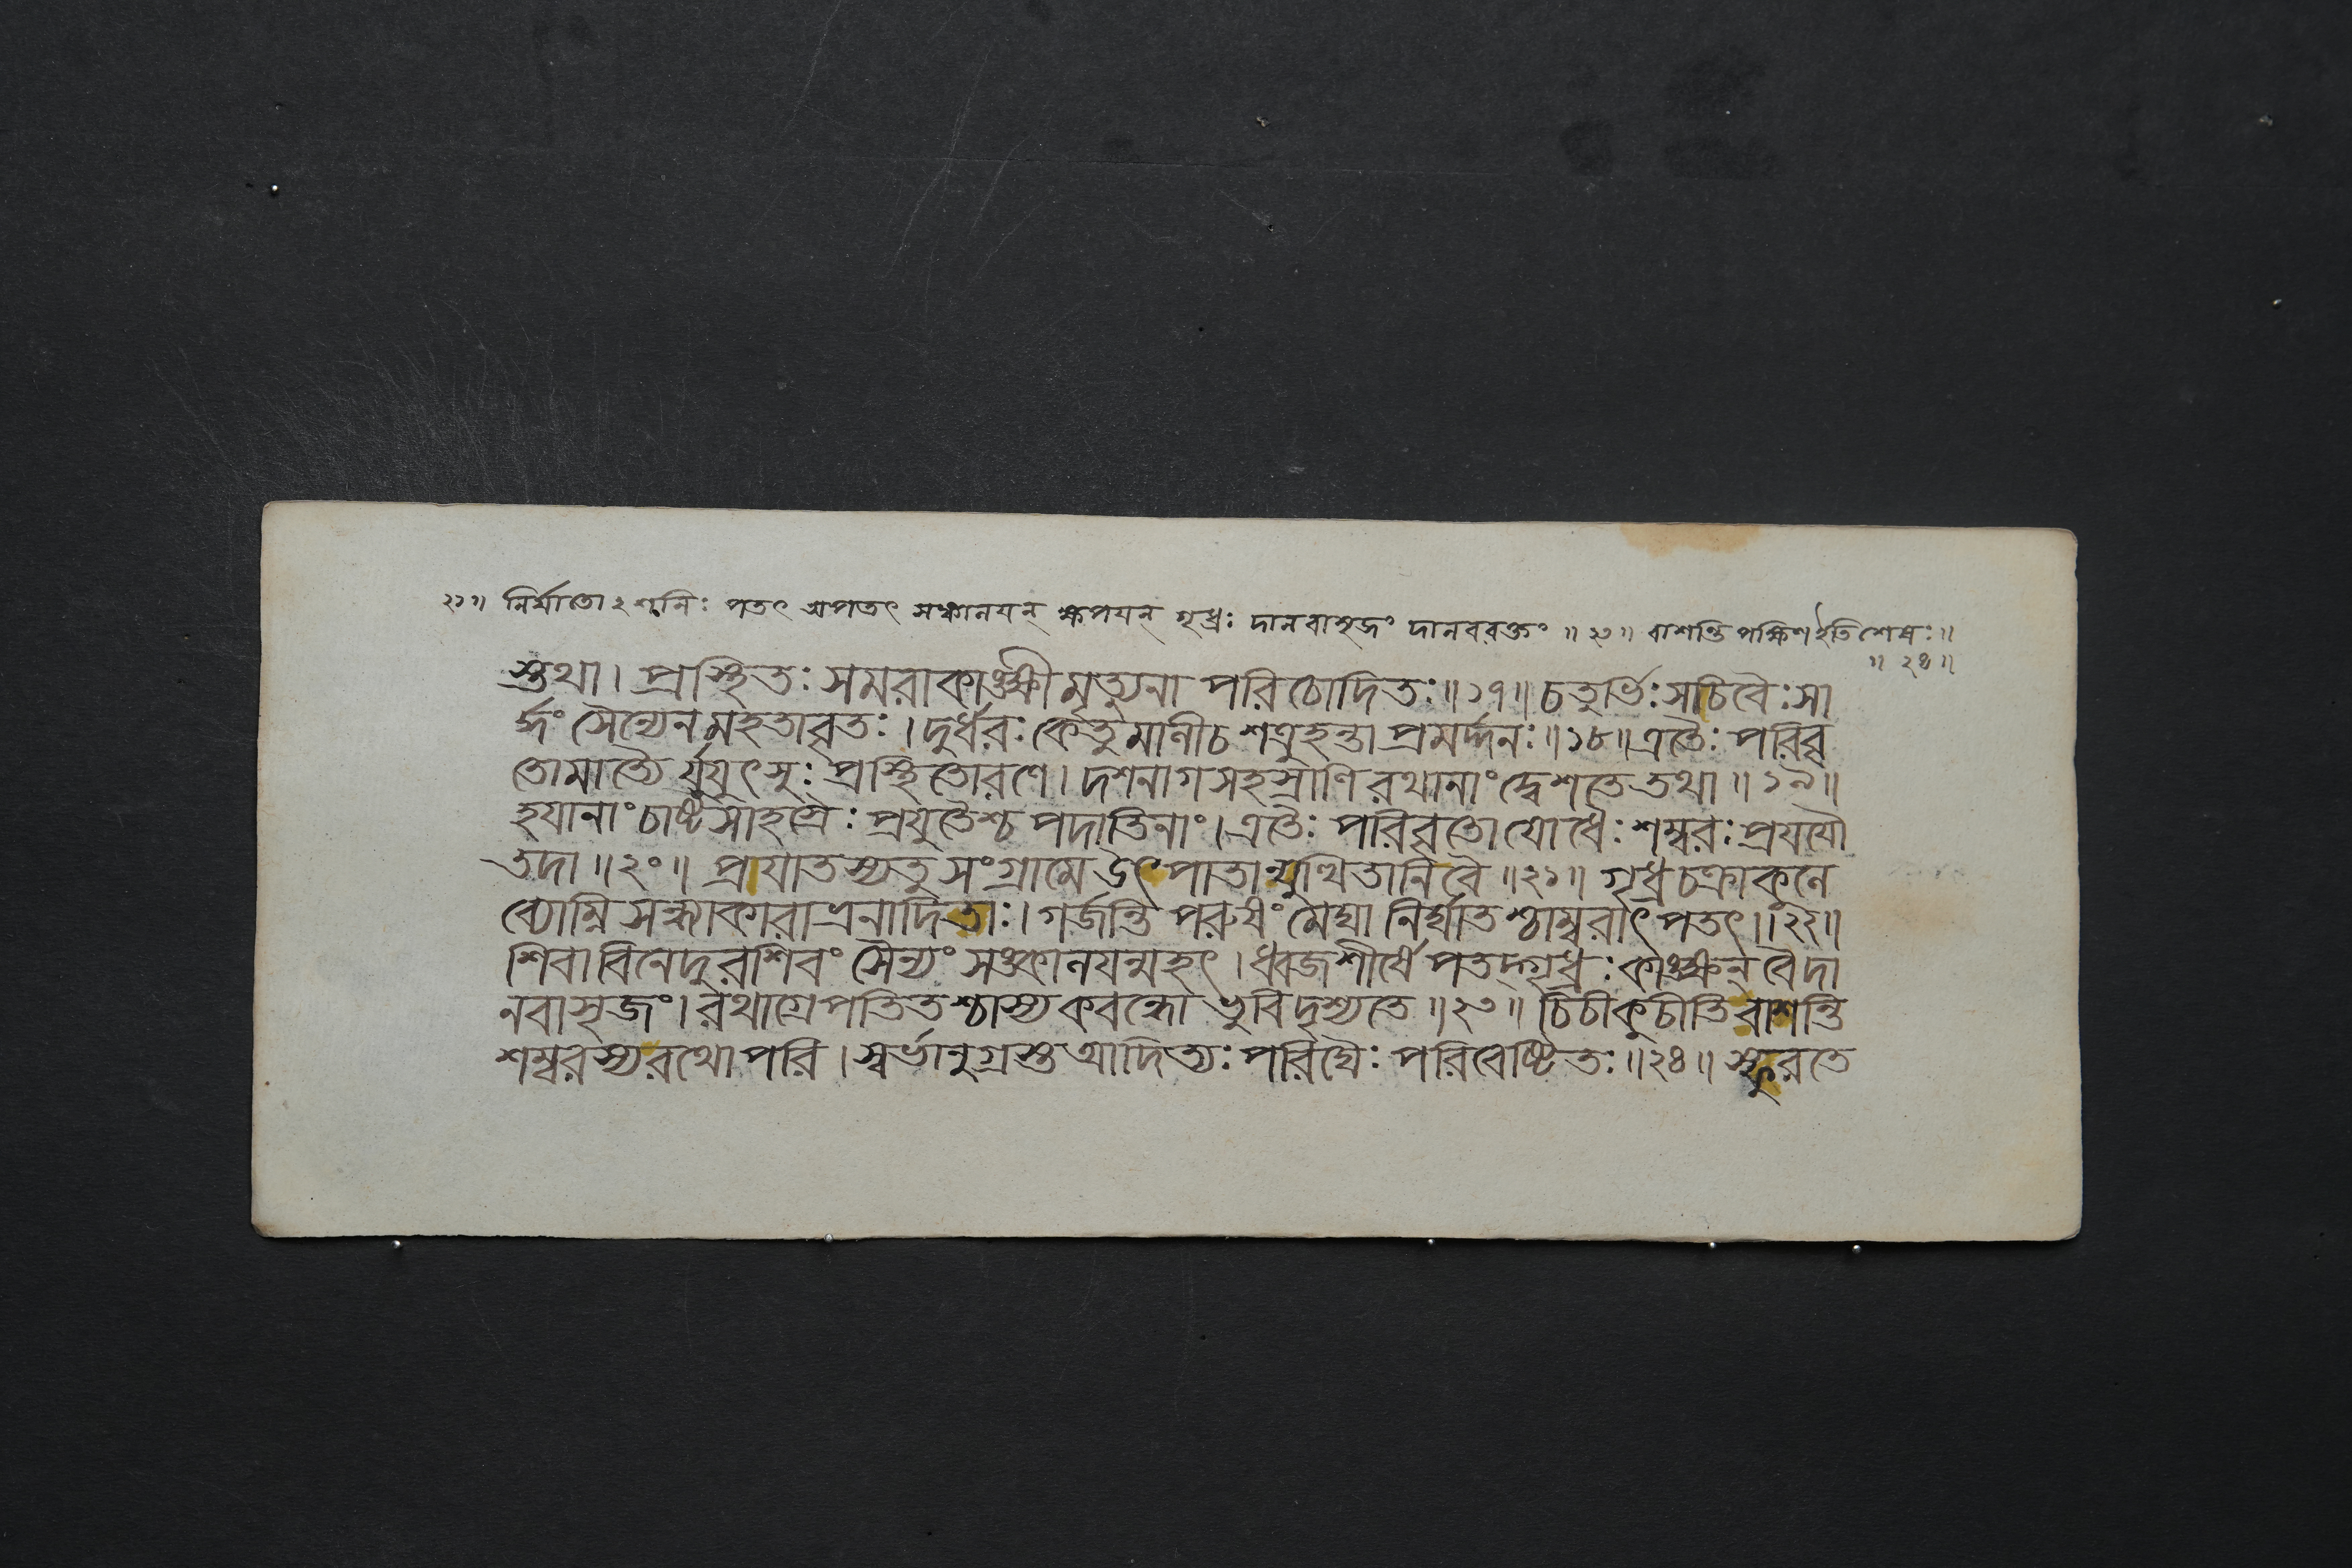 ২১॥ নির্ঘাতোঽশনিঃ পতৎ অপতৎ সঞ্চালয়ন্ কম্পয়ন্ গৃধ্রঃ দানবাসৃজং দানবরক্তং ॥২৩॥ বাশন্তি পক্ষিণ ইতি শেষঃ॥
॥২৪॥
স্তথা। প্রস্থিতঃ সমরাকাঙ্ক্ষী মৃত্যুনা পরিচোদিতঃ॥১৭॥ চতুর্ভিঃ সচিবৈঃ সা
র্দ্ধং সৈন্যেন মহতাবৃতঃ। দুর্ধরঃ কেতুমালী চ শত্রুহন্তা প্রমর্দ্দনঃ॥১৮॥ এতৈঃ পরিবৃ
তোমাত্যৈর্যুযুৎসুঃ প্রস্থিতোরণে। দশনাগসহস্রাণি রথানাং দ্বেশতে তথা॥১৯॥
হয়ানাং চাষ্টসাহস্রৈঃ প্রযুতৈশ্চ পদাতিনাং। এতৈঃ পরিবৃতো যোধৈঃ শম্বরঃ প্রযযৌ
তদা॥২০॥ প্রয়াতস্য তু সংগ্রামে উৎপাতান্যুত্থিতানি বৈ॥২১॥ গৃধ্রচক্রাকুলে
ব্যোম্নি সন্ধ্যাকারাভ্রনাদিতাঃ। গর্জন্তি পরুষং মেঘা নির্ঘাতশ্চাম্বরাৎ পতৎ॥২২॥
শিবা বিনেদুরশিবং সৈন্যং সঞ্চালয়ন্মহৎ। ধ্বজশীর্ষে পতদ্গৃধ্রঃ কাঙ্ক্ষন্ বৈ দা
নবাসৃজং। রথাগ্রে পতিতশ্চাস্য কবন্ধো ভুবি দৃশ্যতে॥২৩॥ চিচীকুচীতি বাশন্তি
শম্বরস্য রথোপরি। স্বর্ভানুগ্রস্ত আদিত্যঃ পরিঘৈঃ পরিবেষ্টিতঃ॥২৪॥ স্ফুরতে